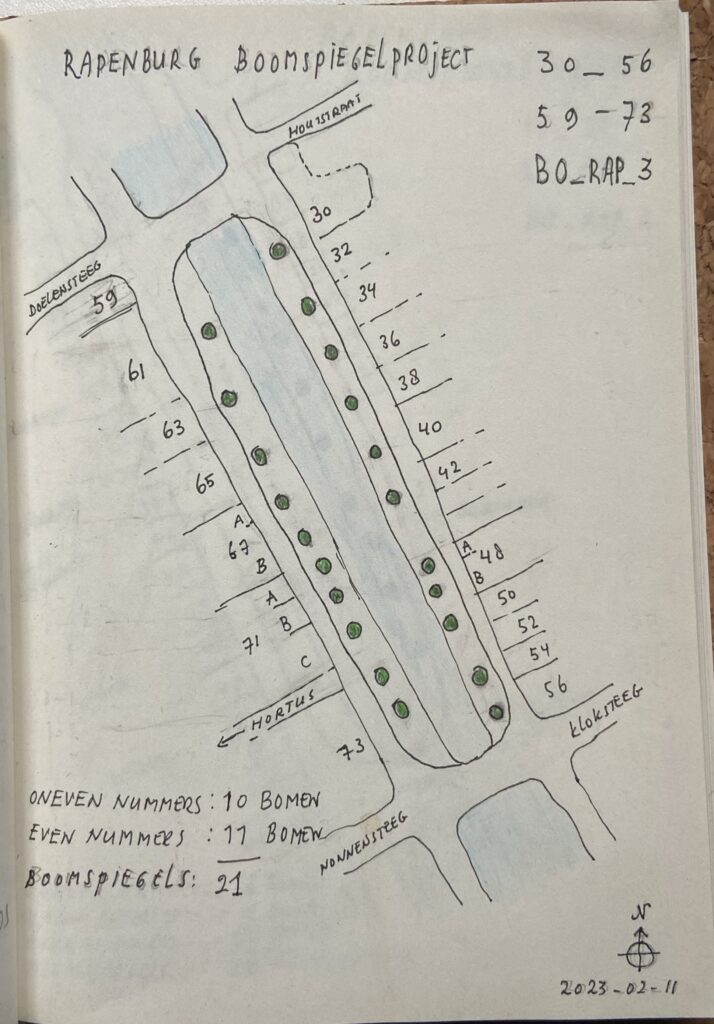 RAPENBURG BOOMSPIEGELPROJECT
30_56
59-73
BO_RAP_3
HOUTSTRAAT
30
32
34
36
38
40
42
A
48
B
50
52
54
56
KLOKSTEEG
DOELENSTEEG
59
61
63
65
A
67
B
A
B
71
C
HORTUS
73
NONNENSTEEG
ONEVEN NUMMERS: 10 BOMEN
EVEN NUMMERS : 11 BOMEN
BOOMSPIEGELS: 21
N
2023-02-11